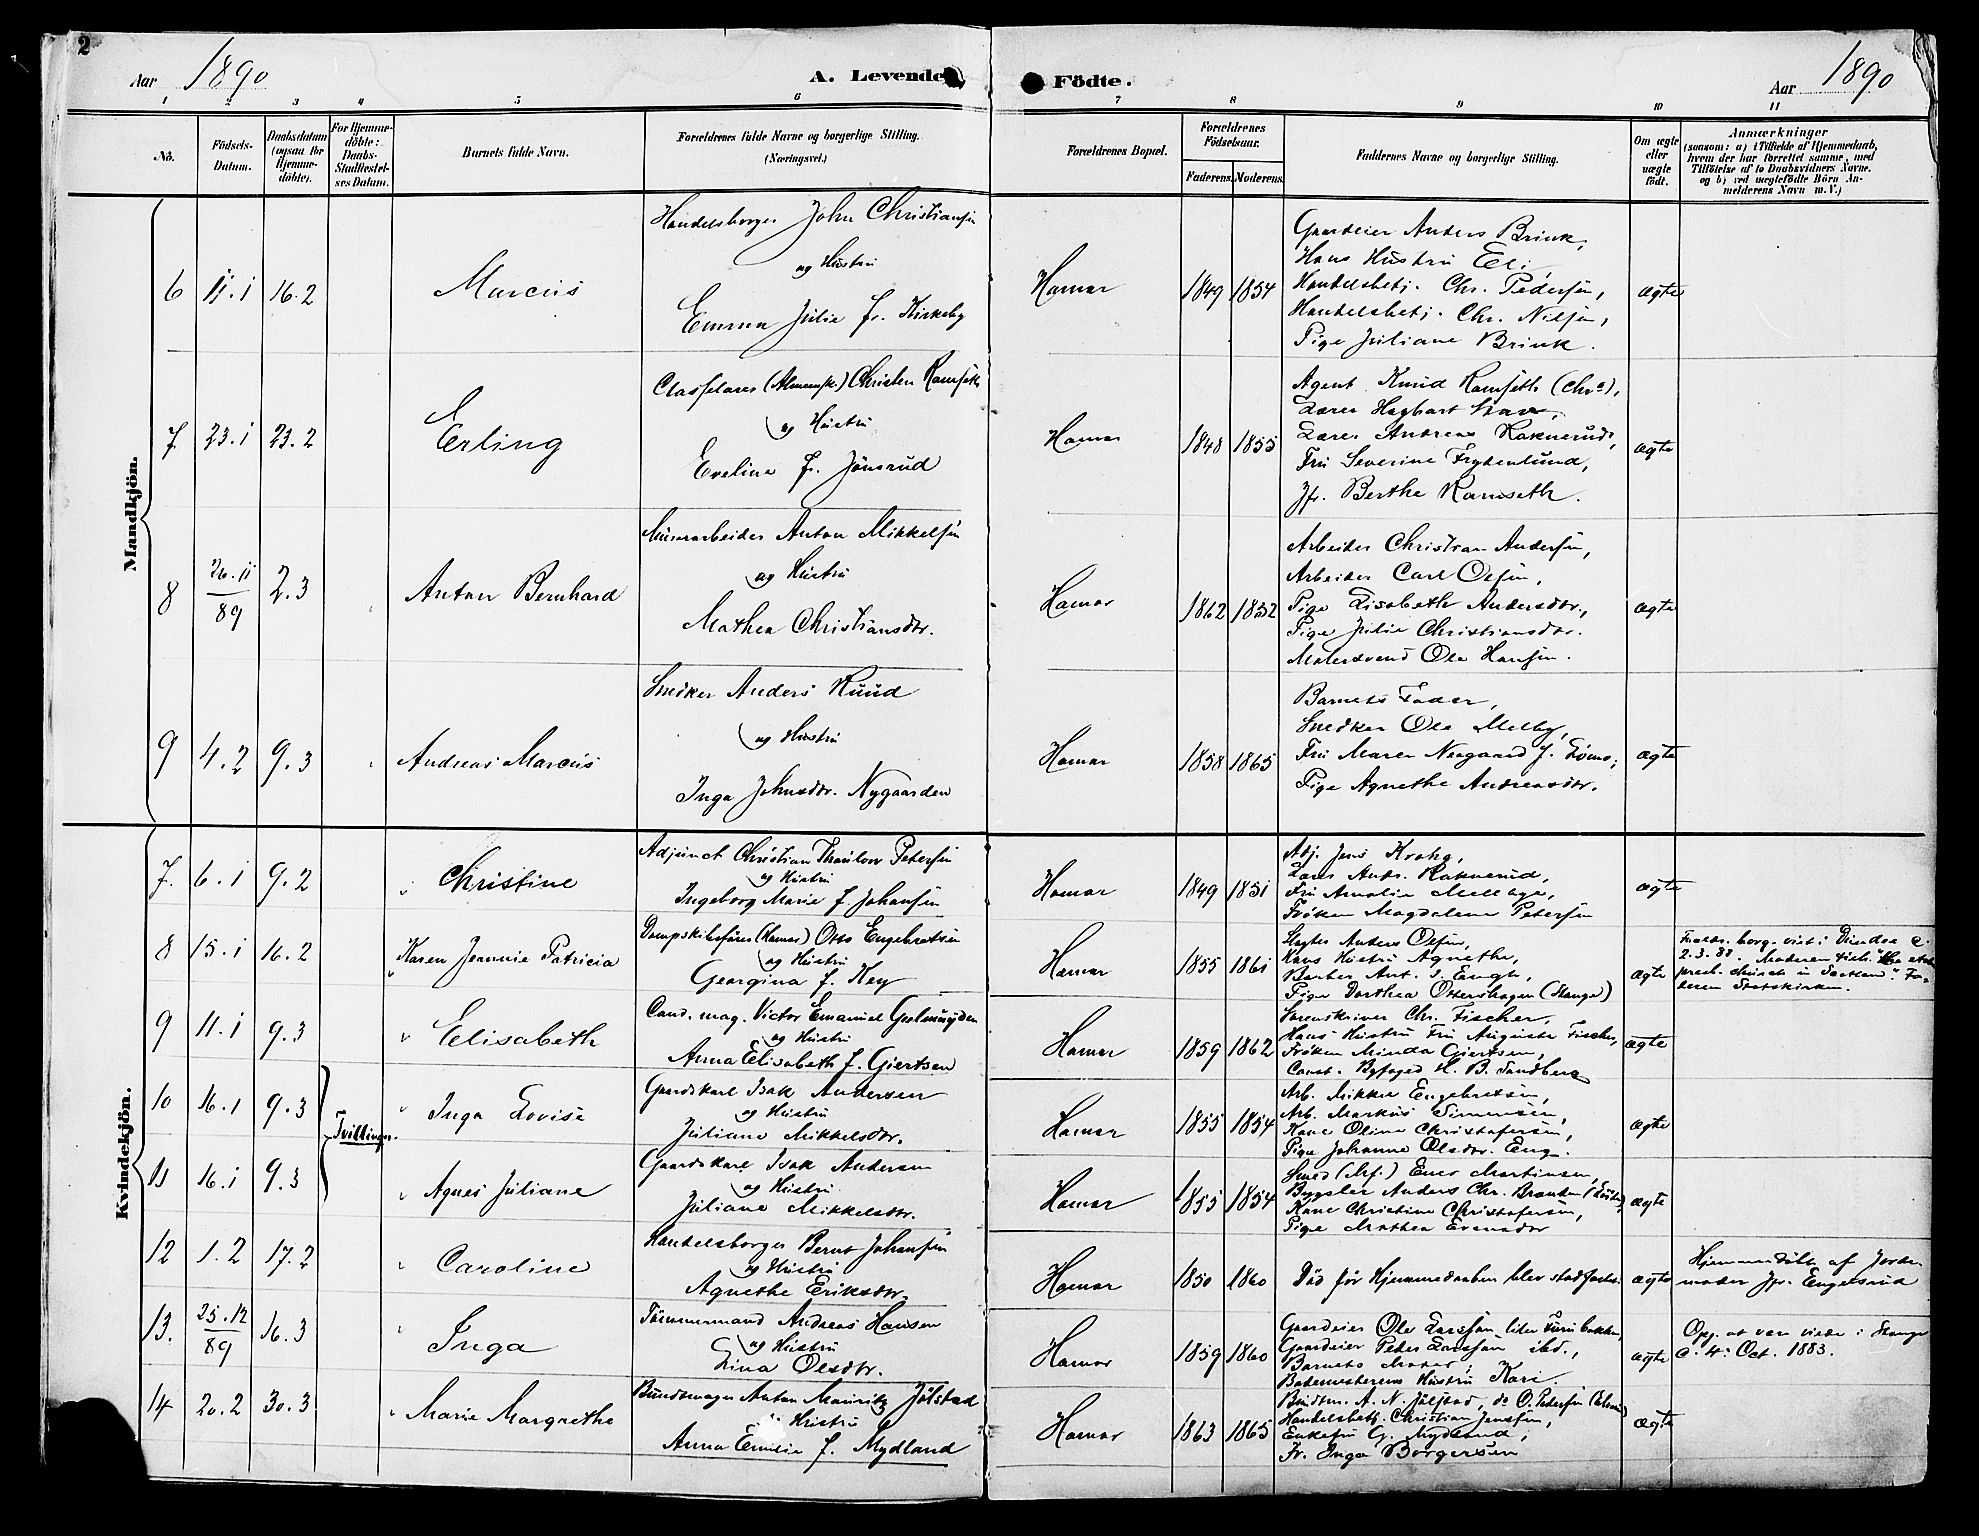 2
Aar 1890
A. Levende
Födte.
Aar 1890
1 2 3 4 5 6 7 8 9 10 11
No.
Födsels-Datum.
Daabsdatum (ogsaa for Hjemme-döbte).
For Hjemme-döbte: Daabs-Stadfæstel-ses Datum.
Barnets fulde Navn.
Forældrenes fulde Navne og borgerlige Stilling. (Næringsvei.)
Forældrenes Bopæl.
Forældrenes Födselsaar.
Faderens. Moderens.
Faddernes Navne og borgerlige Stilling.
Om ægte eller uægte födt.
Anmærkninger
(saasom: a) i Tilfælde af Hjemmedaab,
hvem der har forrettet samme, med
Tilföielse af to Daabsvidners Navne.
og b) ved uægtefödte Börn An-
melderens Navn m. V.)
Mandkjön.
6 11.1 16.2 Marcus
Handelsborger John Christiansen
og Hustru
Emma Julie f. Kirkeby
Hamar 1849 1854
Gaardeier Anders Brink,
Hans Hustru Eli
Handelsbetj. Chr. Pedersen,
Handelsbetj. Chr. Nilsen,
Pige Juliane Brink.
ægte
7 23.1 23.2 Erling
Classelærer (Almuesk.) Christen Ramseth
og Hustru
Eveline f. Jönsrud
Hamar 1848 1855
Agent Knud Ramseth (Chr.a),
Lærer Hagbart
Lærer Andreas Raknerud,
Fru Severine Frydenlund,
Jfr. Berthe Ramseth.
ægte
8 26.11/89 2.3 Anton Bernhard
Murerarbeider Anton Mikkelsen
og Hustru
Mathea Christiansdtr.
Hamar 1862 1852
Arbeider Christian Andersen,
Arbeider Carl Olsen,
Pige Elisabeth Andersdtr.,
Pige Julie Christiansdtr.
Malersvend Ole Hansen.
ægte
9 4.2 9.3 Andreas Marcus
Snedker Anders Ruud
og Hustru
Inga Johnsdtr. Nygaarden
Hamar 1858 1865
Barnets Fader,
Snedker Ole Melby,
Fru Maren Neegaard f. Lömo,
Pige Agnethe Andreasdtr.
ægte
Kvindekjön.
7. 6.1 9.2 Christine
Adjunct Christian Thaulow Petersen
og Hustru
Ingeborg Marie f. Johansen
Hamar 1849 1851
Adj. Jens Krohg,
Lærer Andr. Raknerud,
Fru Amalie Mellbye,
Fröken Magdalene Petersen
ægte
8 15.1 16.2 Karen Jeannie Patricia
Dampskibsförer (Hamar) Otto Engebretsen
og Hustru
Georgina f. Key
Hamar 1855 1861
Slagter Anders Olsen,
Hans Hustru Agnethe,
Barber Ant. J. Engh,
Pige Dorthea Ottershagen (Stange)
ægte
Foræld. borg. viet i Dundee
2.3.88. Moderen tilh. "the
presb. church in Scotland". Fa-
deren Statskirken.
9 11.1 9.3 Elisabeth
Cand. mag. Victor Emanuel Geelmuyden
og Hustru
Anna Elisabeth f. Giertsen
Hamar 1859 1862
Sorenskriver Chr. Fischer,
Hans Hustru Fru Augusta Fischer,
Fröken Minda Giertsen,
Const. Byfoged H. B. Sandberg
ægte
10 16.1 9.3 Inga Lovise
Tvillinger.
Gaardskarl Isak Andersen
og Hustru
Juliane Mikkelsdtr.
Hamar 1855 1854
Arb. Mikkel Engebretsen,
Arb. Markus Simensen,
Kone Oline Christofersen,
Pige Johanne Olsdtr. Eng.
ægte
11 16.1 9.3 Agnes Juliane
Gaardskarl Isak Andersen
og Hustru
Juliane Mikkelsdtr.
Hamar 1855 1854
Smed (Arf.) Ener Martinsen,
Bygsler Anders Chr.
Kone Christine Christofersen,
Pige Mathea Evensdtr
ægte
12 1.2 17.2 Caroline
Handelsborger Bernt Johansen
og Hustru
Agnethe Eriksdtr.
Hamar 1850 1860
Död för Hjemmedaaben blev stadfæstet.
ægte
Hjemmedöbt af Jorde-
moder Jfr. Engesrud
13. 25.12/89 16.3 Inga
Tömmermand Andreas Hansen
og Hustru
Lina Olsdtr.
Hamar 1859 1860
Gaardeier Ole Larssen lille Furubakken,
Gaardeier Peder Larssen ibd.,
Barnets Moder,
Bademesterens Hustru Kari
ægte
Opg. at være viede i Stange
C. 4. Oct. 1883.
14 20.2 30.3 Marie Margrethe
Bundtmager Anton Mauritz Jölstad
og Hustru
Anna Emilie f. Mydland
Hamar 1863 1865
Bundtm. A. N. Jölstad, do O. Pedersen
Handelsbetj. Christian Jenssen,
Enkefru G. Mydland,
Fr. Inga Borgersen
ægte